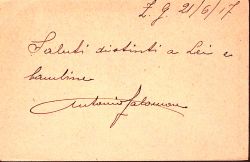 Z. G. 21/6/17
Saluti distinti a Lei e
bambine
Antonio Salomon